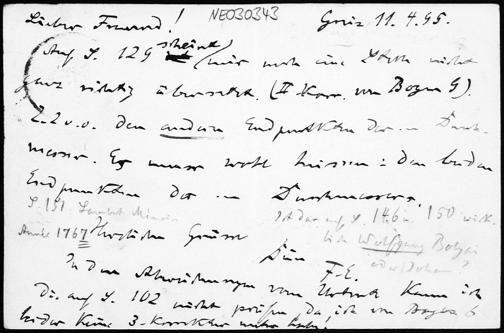 Lieber Freund! NEO30343 Greiz 11.4.95.
Auf S. 129 scheint mir noch eine Stelle nicht
ganz richtig übersetzt. (II Korr. von Bogen 9).
Z. 2 v. o. den anderen Endpunkten der n Durch-
messer. Es muss wohl heissen: den beiden
Endpunkten der n Durchmessers.
S. 151 Lambert Ist das auf S. 146 u. 150 wirk-
Année 1767 Herzliche Grüsse lich Wolfgang Bolyai
Dein F. E. oder Johann?
In den Abweichungen vom Urtext kann ich
die auf S. 102 nicht prüfen da ich von Bogen 6
leider keine 3. Korrektur mehr habe.